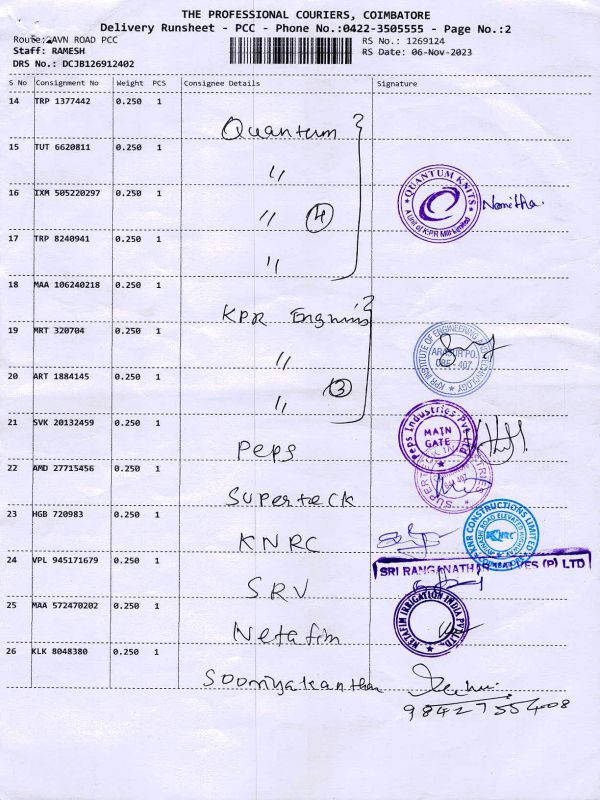 THE PROFESSIONAL COURIERS, COIMBATORE
Delivery Runsheet - PCC - Phone No.:0422-3505555 - Page No.:2
Route: AVN ROAD PCC
RS No.: 1269124
Staff: RAMESH
RS Date: 06-Nov-2023
DRS No.: DCJB126912402
S No Consignment No Weight PCS Consignee Details Signature
14 TRP 1377442 0.250 1
Quantum
15 TUT 6620811 0.250 1
"
16 IXM 505220297 0.250 1
" 4
QUANTUM KNITS
A Unit of K.P.R Mill Limited
Namitha.
17 TRP 8240941 0.250 1
"
18 MAA 106240218 0.250 1
KPR
19 MRT 320704 0.250 1
"
KPR INSTITUTE OF ENGINEERING TECHNOLOGY
ARASUR PO.
407
20 ART 1884145 0.250 1
" 3
21 SVK 20132459 0.250 1
Peps
Peps Industries Pvt Ltd
MAIN
GATE
22 AMD 27715456 0.250 1
Superteck
23 HGB 720983 0.250 1
KNRC
KNR CONSTRUCTIONS LIMITED
KNRC
24 VPL 945171679 0.250 1
SRV
SRI RANGANATHAR VALVES (P) LTD
25 MAA 572470202 0.250 1
Netafim
NETAFIM IRRIGATION INDIA PVT LTD.
26 KLK 8048380 0.250 1
Soomyakantha